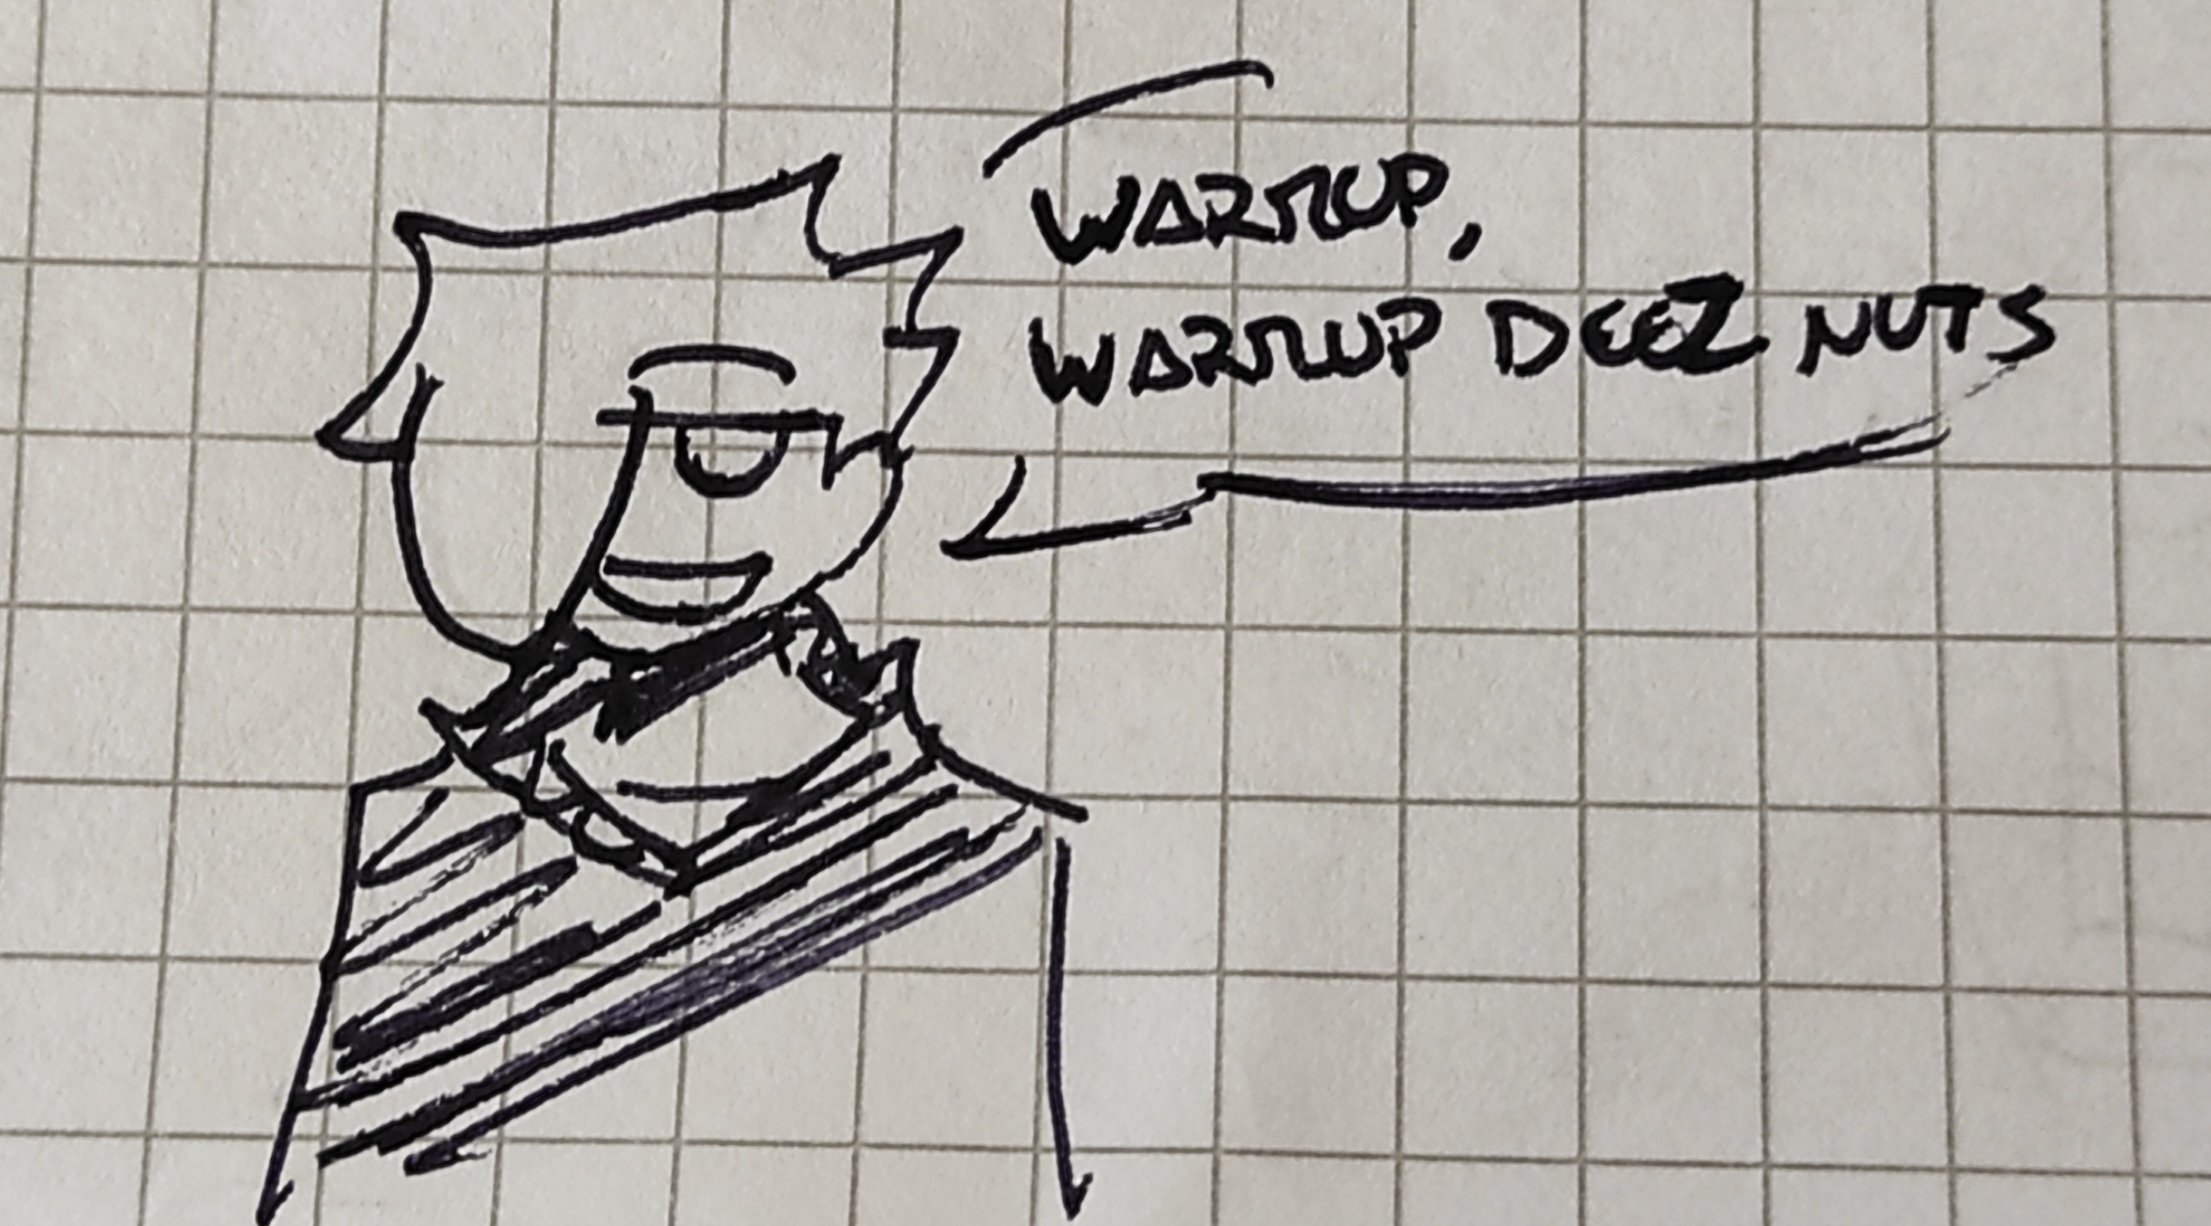 WARMUP,
WARMUP DEEZ NUTS